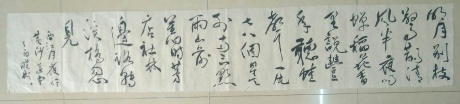 明月别枝
驚鵲清
風半夜鳴
蟬稻花香
里說豐
年聽取蛙
聲一片
七八个星天
外兩三點
雨山前
舊時茅
店社林
邊路轉
溪橋忽
見
西江月夜行
黄沙道中